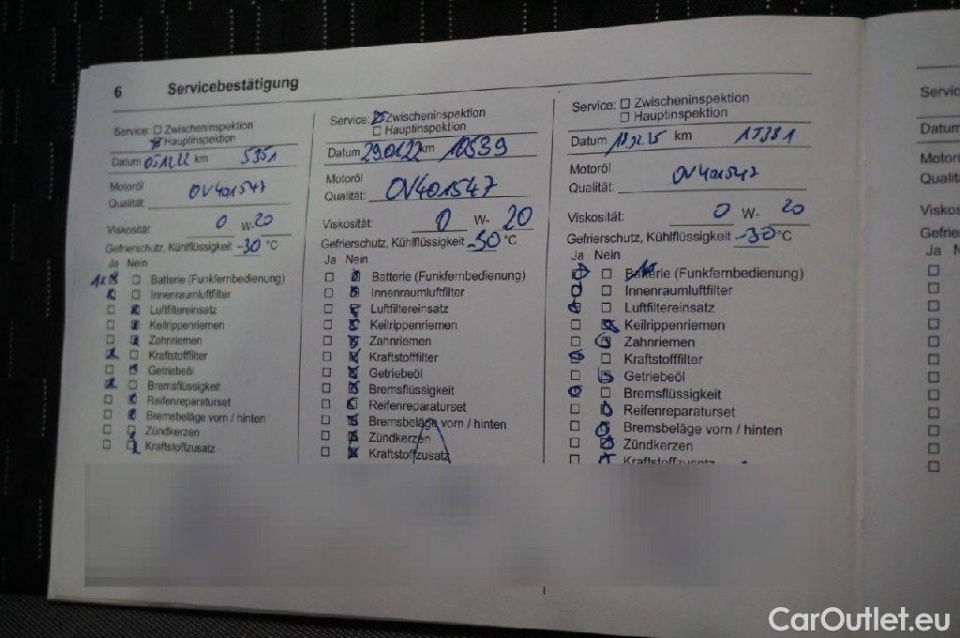 6 Servicebestätigung
Service: Zwischeninspektion
Hauptinspektion
Datum 05.12.22 km 5351
Motoröl
Qualität OV401547
Viskosität: 0 W-20
Gefrierschutz, Kühlflüssigkeit -30 °C
Ja Nein
Batterie (Funkfernbedienung)
Innenraumluftfilter
Luftfiltereinsatz
Keilrippenriemen
Zahnriemen
Kraftstofffilter
Getriebeöl
Bremsflüssigkeit
Reifenreparaturset
Bremsbeläge vorn / hinten
Zündkerzen
Kraftstoffzusatz
Service: Zwischeninspektion
Hauptinspektion
Datum 29.01.22 km 10539
Motoröl
Qualität: OV401547
Viskosität: 0 W-20
Gefrierschutz, Kühlflüssigkeit -30 °C
Ja Nein
Batterie (Funkfernbedienung)
Innenraumluftfilter
Luftfiltereinsatz
Keilrippenriemen
Zahnriemen
Kraftstofffilter
Getriebeöl
Bremsflüssigkeit
Reifenreparaturset
Bremsbeläge vorn / hinten
Zündkerzen
Kraftstoffzusatz
Service: Zwischeninspektion
Hauptinspektion
Datum km
Motoröl
Qualität: OV401547
Viskosität: 0 W- 20
Gefrierschutz, Kühlflüssigkeit -30 °C
Ja Nein
Batterie (Funkfernbedienung)
Innenraumluftfilter
Luftfiltereinsatz
Keilrippenriemen
Zahnriemen
Kraftstofffilter
Getriebeöl
Bremsflüssigkeit
Reifenreparaturset
Bremsbeläge vorn / hinten
Zündkerzen
Kraftstoffzusatz
Servic
Datum
Motorö
Qualitä
Viskos
Gefrier
Ja N
CarOutlet.eu